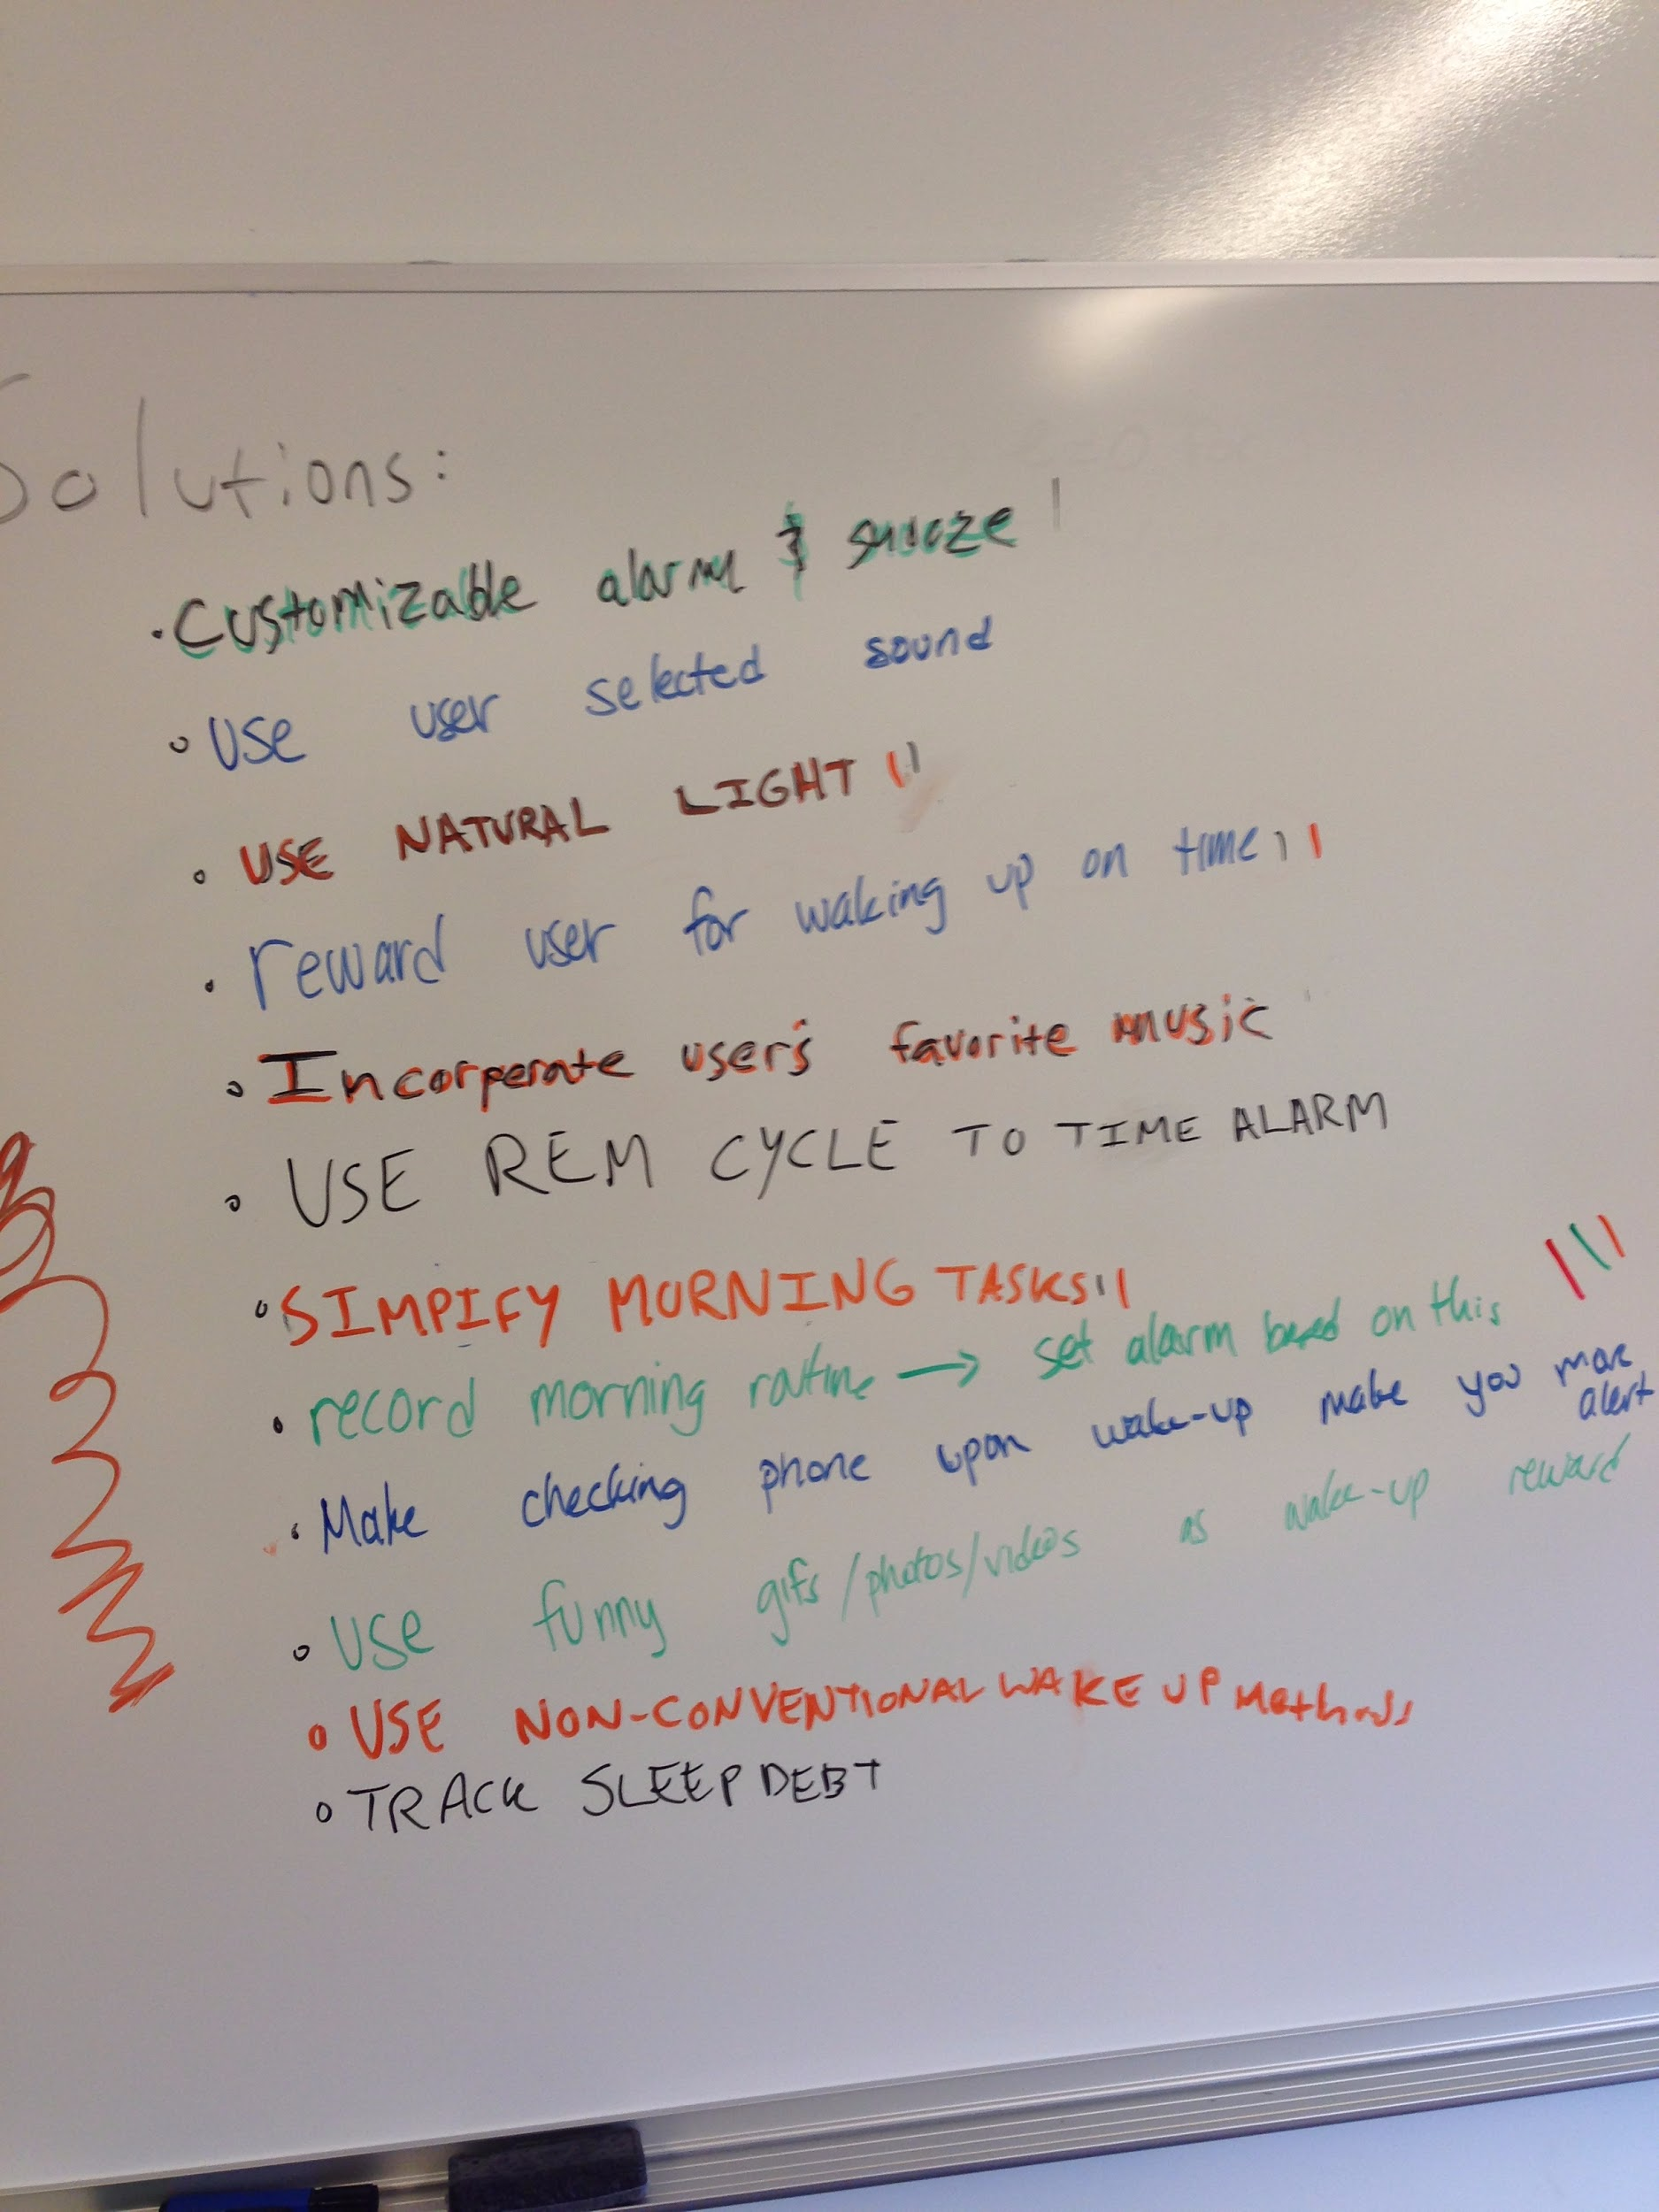 Solutions:
• Customizable alarm & snooze |
• Use user selected sound
• USE NATURAL LIGHT ||
• reward user for waking up on time ||
• Incorperate user's favorite music
• USE REM CYCLE TO TIME ALARM
• SIMPIFY MORNING TASKS ||
• record morning routine → set alarm based on this |||
• Make checking phone upon wake-up make you more
alert
• Use funny gifs/photos/videos as wake-up reward
• USE NON-CONVENTIONAL WAKE UP Methods
• TRACK SLEEP DEBT